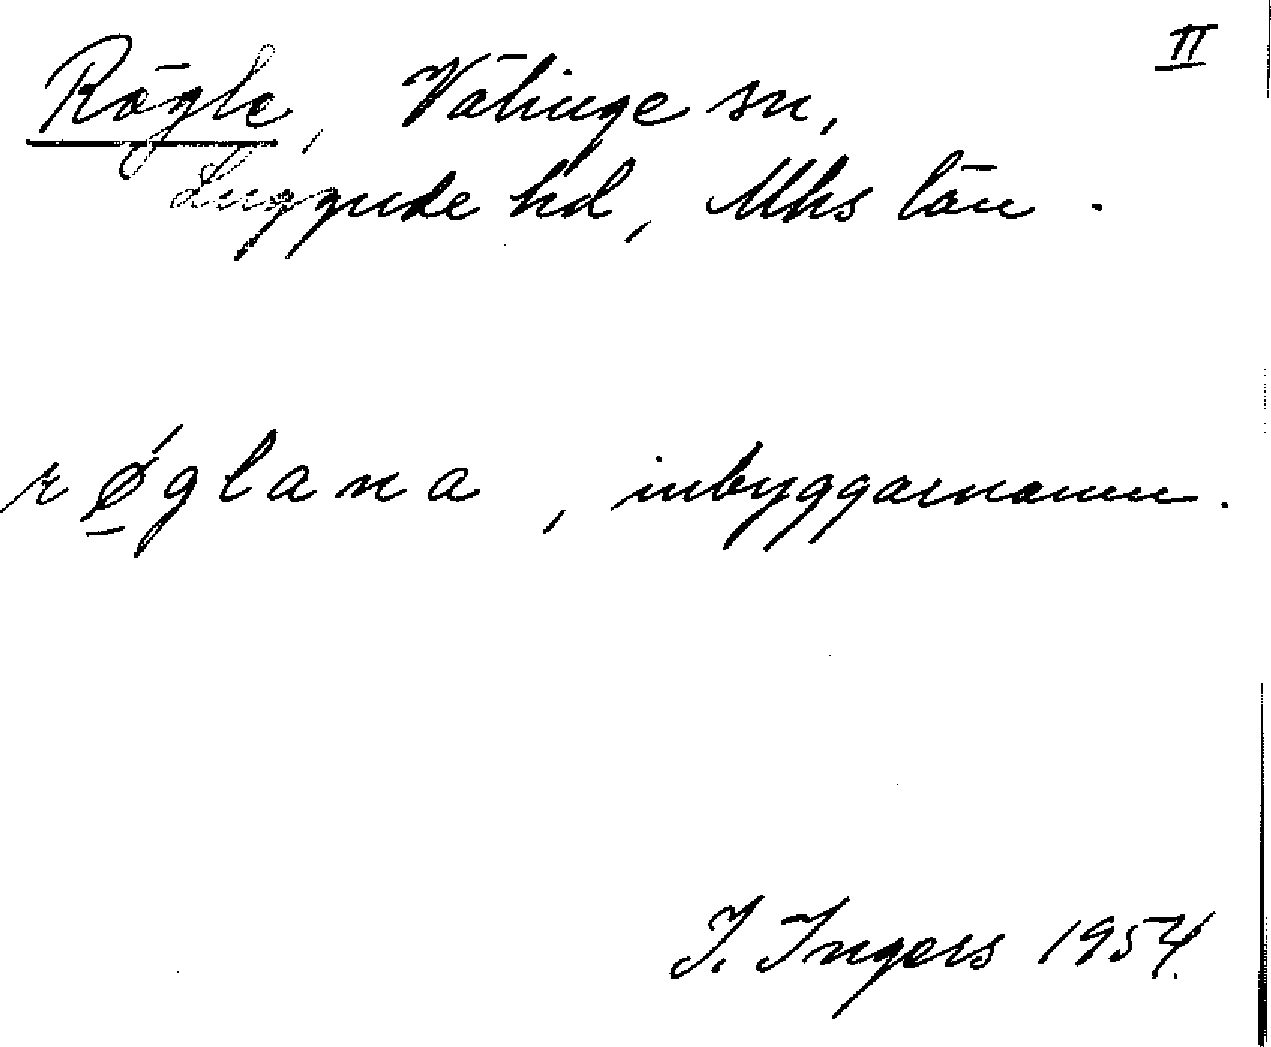 II
Rögle, Välinge sn,
Luggude hd, Mhs län.
rǿ̲glana, inbyggarnamn.
I. Ingers 1954.